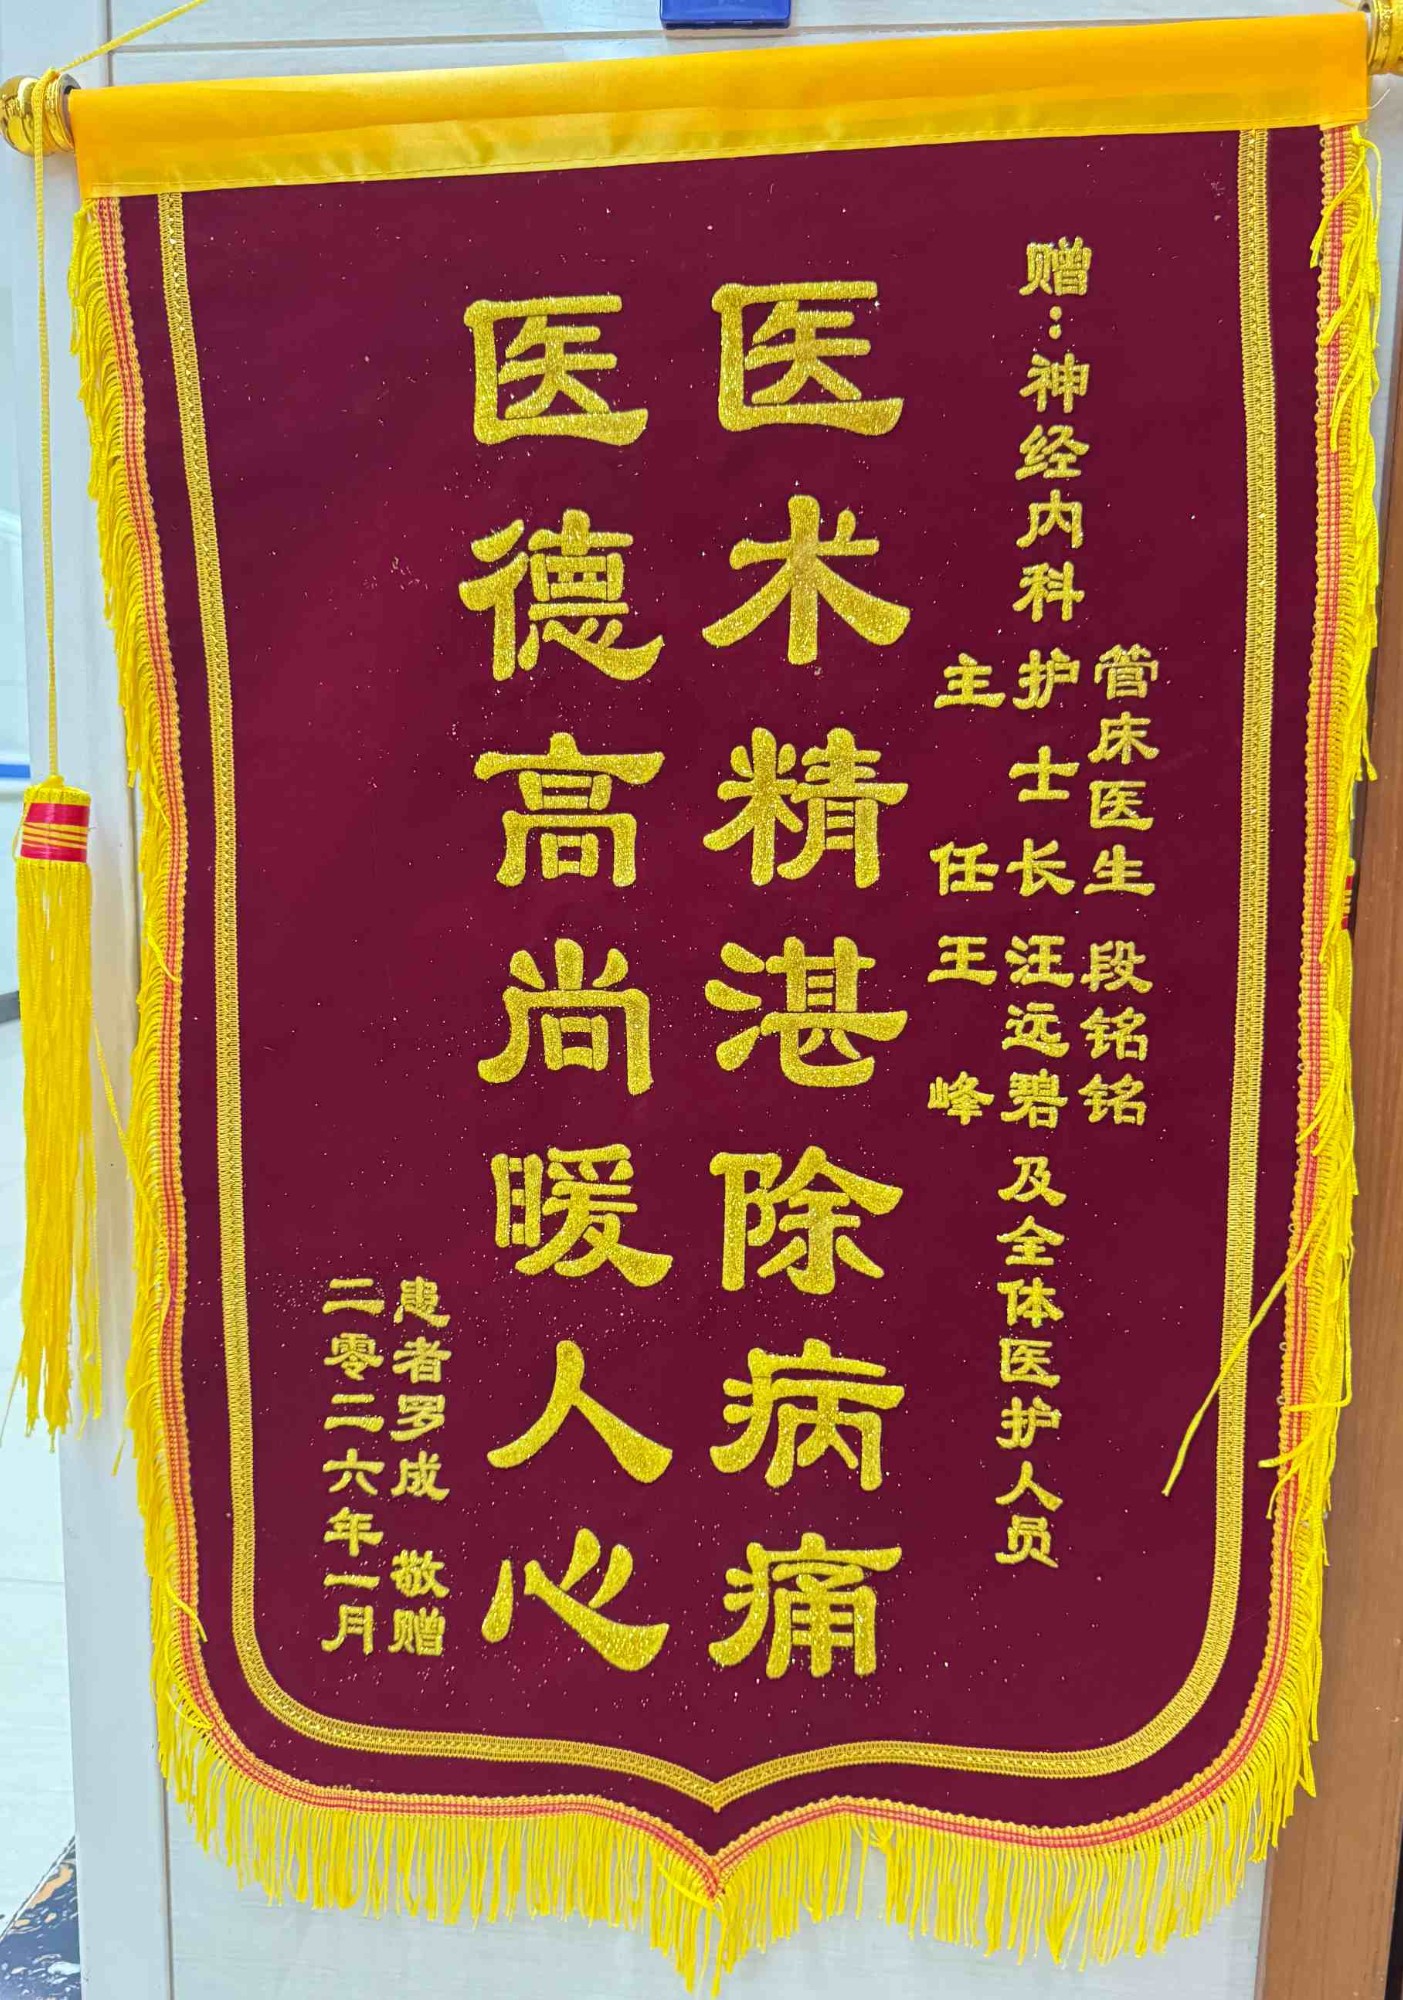 赠：神经内科
管床医生 段铭铭
护士长 汪远碧
主任 王峰
及全体医护人员
医术精湛除病痛
医德高尚暖人心
患者罗成 敬赠
二零二六年一月